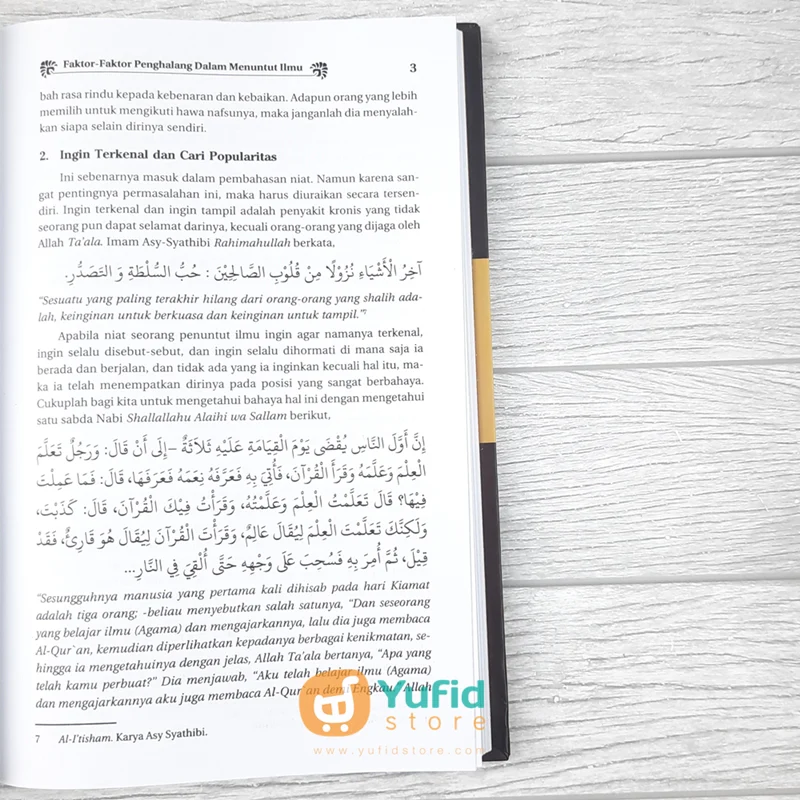 Faktor-Faktor Penghalang Dalam Menuntut Ilmu 3
bah rasa rindu kepada kebenaran dan kebaikan. Adapun orang yang lebih
memilih untuk mengikuti hawa nafsunya, maka janganlah dia menyalah-
kan siapa selain dirinya sendiri.
2. Ingin Terkenal dan Cari Popularitas
Ini sebenarnya masuk dalam pembahasan niat. Namun karena san-
gat pentingnya permasalahan ini, maka harus diuraikan secara tersen-
diri. Ingin terkenal dan ingin tampil adalah penyakit kronis yang tidak
seorang pun dapat selamat darinya, kecuali orang-orang yang dijaga oleh
Allah Ta'ala. Imam Asy-Syathibi Rahimahullah berkata,
آخِرُ الْأَشْيَاءِ نُزُوْلًا مِنْ قُلُوْبِ الصَّالِحِيْنَ : حُبُّ السُّلْطَةِ وَ التَّصَدُّرِ.
"Sesuatu yang paling terakhir hilang dari orang-orang yang shalih ada-
lah, keinginan untuk berkuasa dan keinginan untuk tampil."7
Apabila niat seorang penuntut ilmu ingin agar namanya terkenal,
ingin selalu disebut-sebut, dan ingin selalu dihormati di mana saja ia
berada dan berjalan, dan tidak ada yang ia inginkan kecuali hal itu, ma-
ka ia telah menempatkan dirinya pada posisi yang sangat berbahaya.
Cukuplah bagi kita untuk mengetahui bahaya hal ini dengan mengetahui
satu sabda Nabi Shallallahu Alaihi wa Sallam berikut,
إِنَّ أَوَّلَ النَّاسِ يُقْضَى يَوْمَ الْقِيَامَةِ عَلَيْهِ ثَلَاثَةٌ –إِلَى أَنْ قَالَ: وَرَجُلٌ تَعَلَّمَ
الْعِلْمَ وَعَلَّمَهُ وَقَرَأَ الْقُرْآنَ، فَأُتِيَ بِهِ فَعَرَّفَهُ نِعَمَهُ فَعَرَفَهَا، قَالَ: فَمَا عَمِلْتَ
فِيْهَا؟ قَالَ تَعَلَّمْتُ الْعِلْمَ وَعَلَّمْتُهُ، وَقَرَأْتُ فِيْكَ الْقُرْآنَ، قَالَ: كَذَبْتَ،
وَلَكِنَّكَ تَعَلَّمْتَ الْعِلْمَ لِيُقَالَ عَالِمٌ، وَقَرَأْتَ الْقُرْآنَ لِيُقَالَ هُوَ قَارِئٌ، فَقَدْ
قِيْلَ، ثُمَّ أُمِرَ بِهِ فَسُحِبَ عَلَى وَجْهِهِ حَتَّى أُلْقِيَ فِي النَّارِ...
"Sesungguhnya manusia yang pertama kali dihisab pada hari Kiamat
adalah tiga orang; -beliau menyebutkan salah satunya, "Dan seseorang
yang belajar ilmu (Agama) dan mengajarkannya, lalu dia juga membaca
Al-Qur`an, kemudian diperlihatkan kepadanya berbagai kenikmatan, se-
hingga ia mengetahuinya dengan jelas, Allah Ta'ala bertanya, "Apa yang
telah kamu perbuat?" Dia menjawab, "Aku telah belajar ilmu (Agama)
dan mengajarkannya aku juga membaca Al-Qur`an demi Engkau." Allah
7 Al-I'tisham. Karya Asy Syathibi.
Yufid
store
www.yufidstore.com